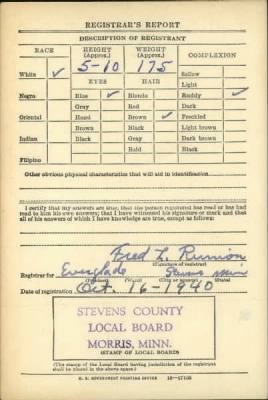 REGISTRAR'S REPORT
DESCRIPTION OF REGISTRANT
RACE HEIGHT (Approx.) WEIGHT (Approx.) COMPLEXION
White ✓ 5-10 175 Sallow
EYES HAIR Light
Negro Blue ✓ Blonde Ruddy ✓
Gray Red Dark
Oriental Hazel Brown ✓ Freckled
Brown Black Light brown
Indian Black Gray Dark brown
Bald Black
Filipino
Other obvious physical characteristics that will aid in identification
I certify that my answers are true; that the person registered has read or has had
read to him his own answers; that I have witnessed his signature or mark and that
all of his answers of which I have knowledge are true, except as follows:
Fred L. Runion
(Signature of registrar)
Registrar for Everglade Stevens Minn
(Precinct) (Ward) (City or county) (State)
Date of registration Oct. 16-1940
STEVENS COUNTY
LOCAL BOARD
MORRIS, MINN.
(STAMP OF LOCAL BOARD)
(The stamp of the Local Board having jurisdiction of the registrant
shall be placed in the above space.)
U. S. GOVERNMENT PRINTING OFFICE 16-17105